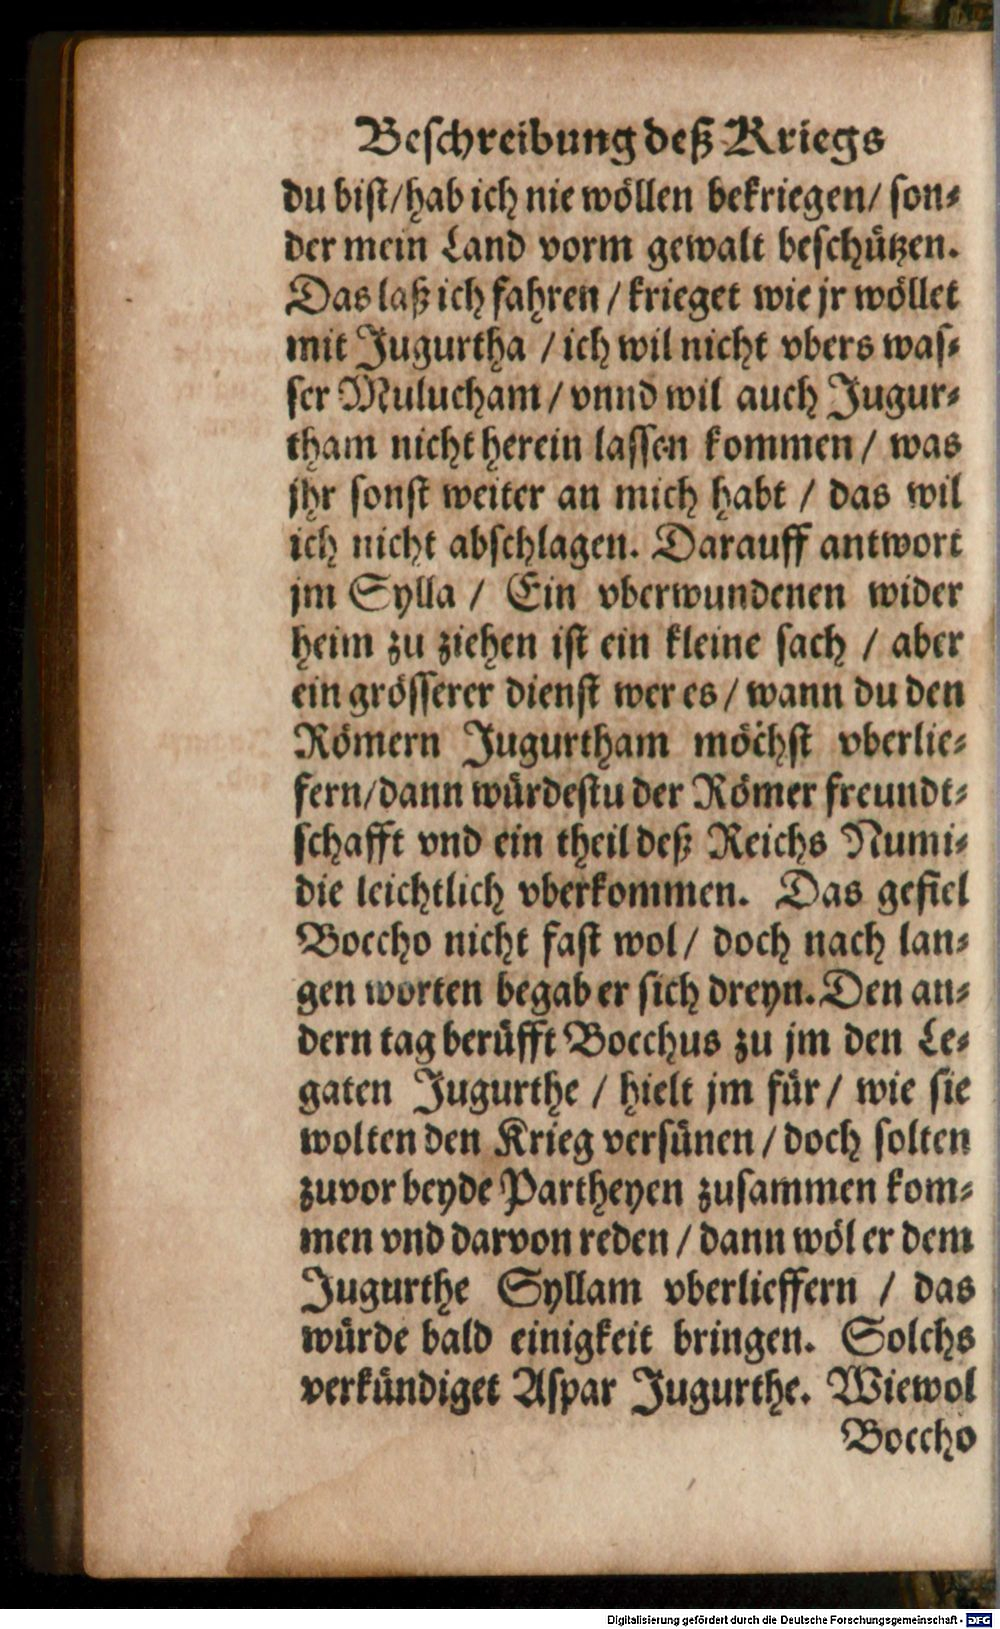 Beschreibung deß Kriegs
du bist/hab ich nie wöllen bekriegen/ son⸗
der mein Land vorm gewalt beschützen.
Das laß ich fahren / krieget wie jr wöllet
mit Jugurtha / ich wil nicht vbers was⸗
ser Mulucham / vnnd wil auch Jugur⸗
tham nicht herein lassen kommen / was
jhr sonst weiter an mich habt / das wil
ich nicht abschlagen. Darauff antwort
jm Sylla / Ein vberwundenen wider
heim zu ziehen ist ein kleine sach / aber
ein grösserer dienst wer es / wann du den
Römern Jugurtham möchst vberlie⸗
fern/dann würdestu der Römer freundt⸗
schafft vnd ein theil deß Reichs Numi⸗
die leichtlich vberkommen. Das gefiel
Boccho nicht fast wol/ doch nach lan⸗
gen worten begab er sich dreyn. Den an⸗
dern tag berüfft Bocchus zu jm den Le⸗
gaten Jugurthe / hielt jm für / wie sie
wolten den Krieg versünen / doch solten
zuvor beyde Partheyen zusammen kom⸗
men vnd darvon reden / dann wöl er dem
Jugurthe Syllam vberlieffern / das
würde bald einigkeit bringen. Solchs
verkündiget Aspar Jugurthe. Wiewol
Boccho
Digitalisierung gefördert durch die Deutsche Forschungsgemeinschaft - DFG